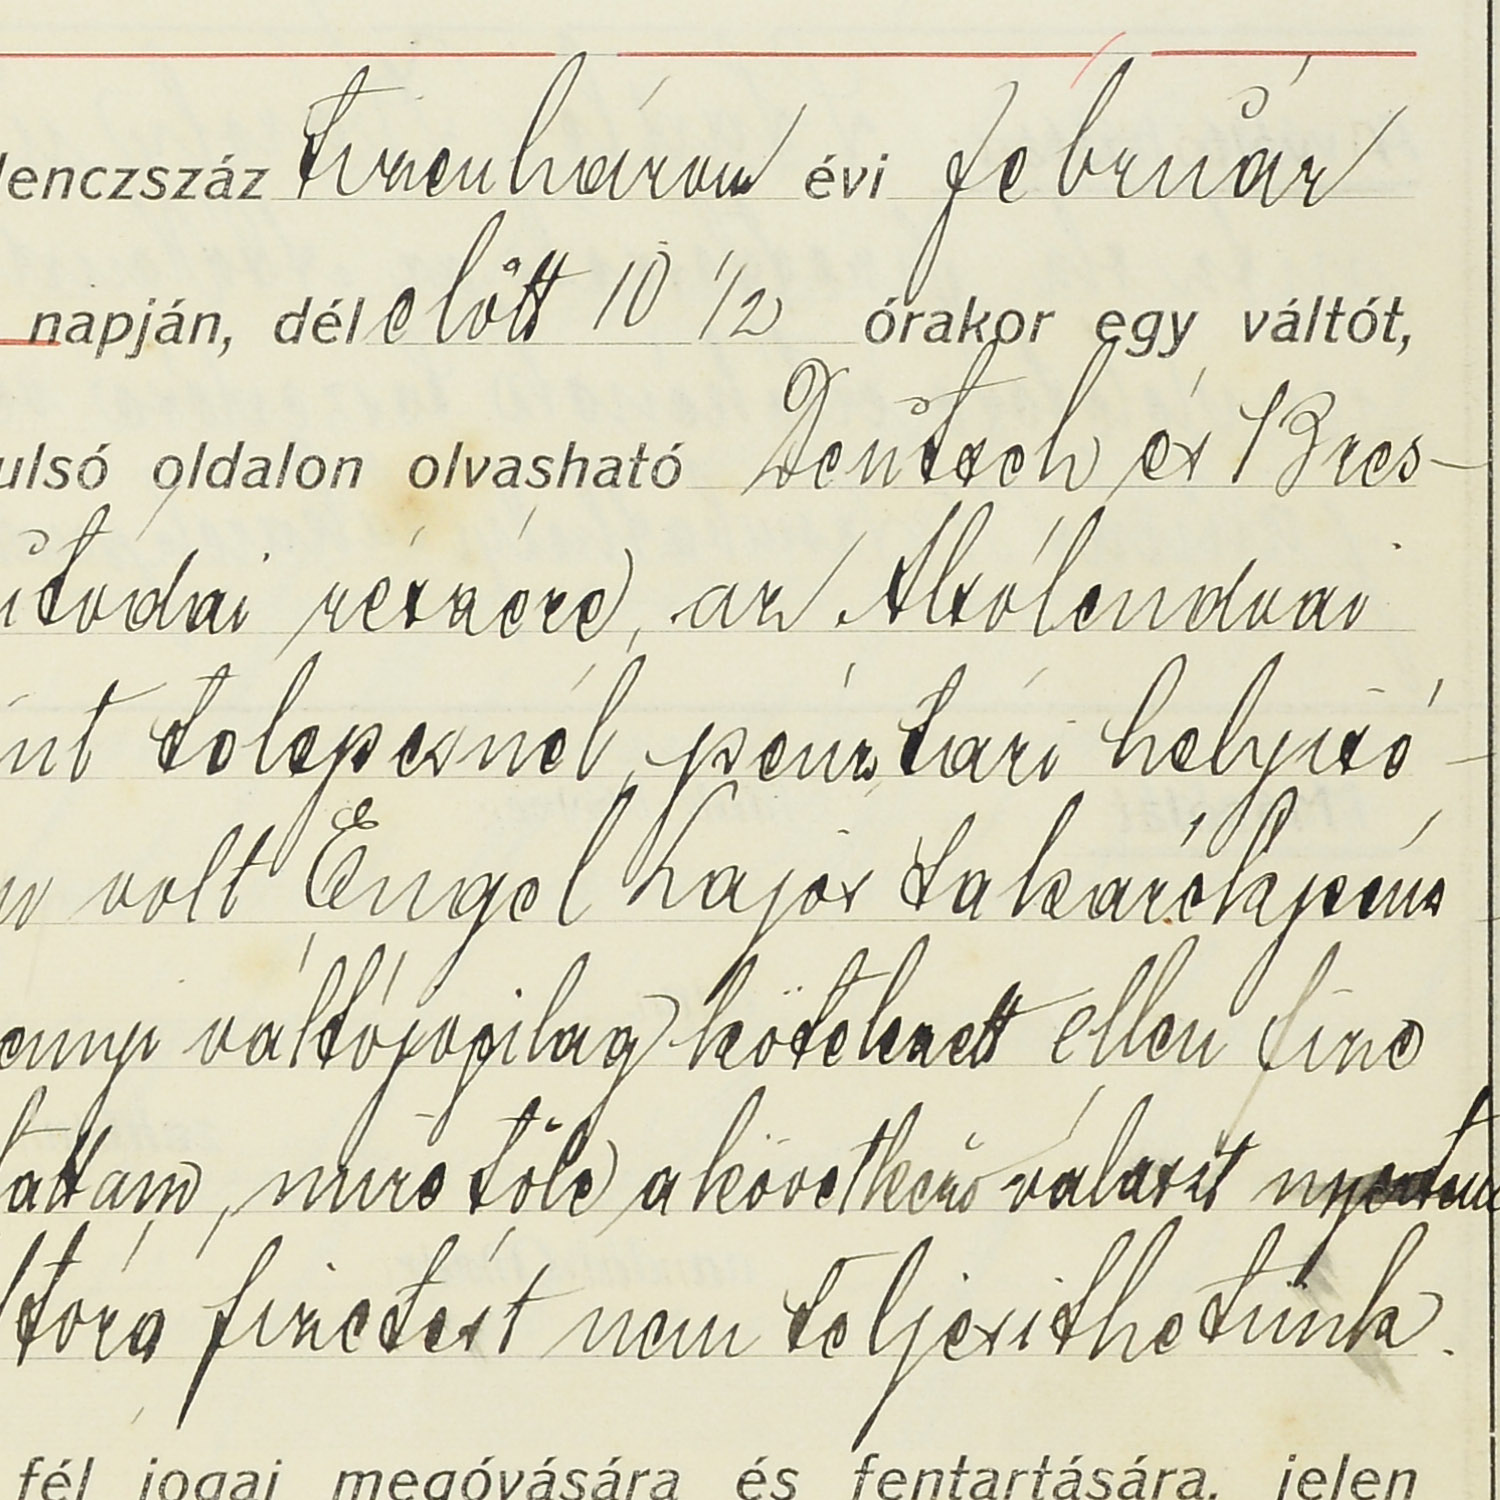 lenczszáz tizenhárom évi február
napján, délelőtt 10 1/2 órakor egy váltót,
ulsó oldalon olvasható Deutsch és Bres-
utodai részére, az Alsólendvai
int telepesnél, pénztári helyisé-
volt Engel Lajos takarékpénz
ennyi váltójogilag kötelezett ellen fize
tattam, mire tőle a következő választ nyertem
ltóra fizetést nem teljesithetünk.
fél jogai megóvására és fentartására, jelen